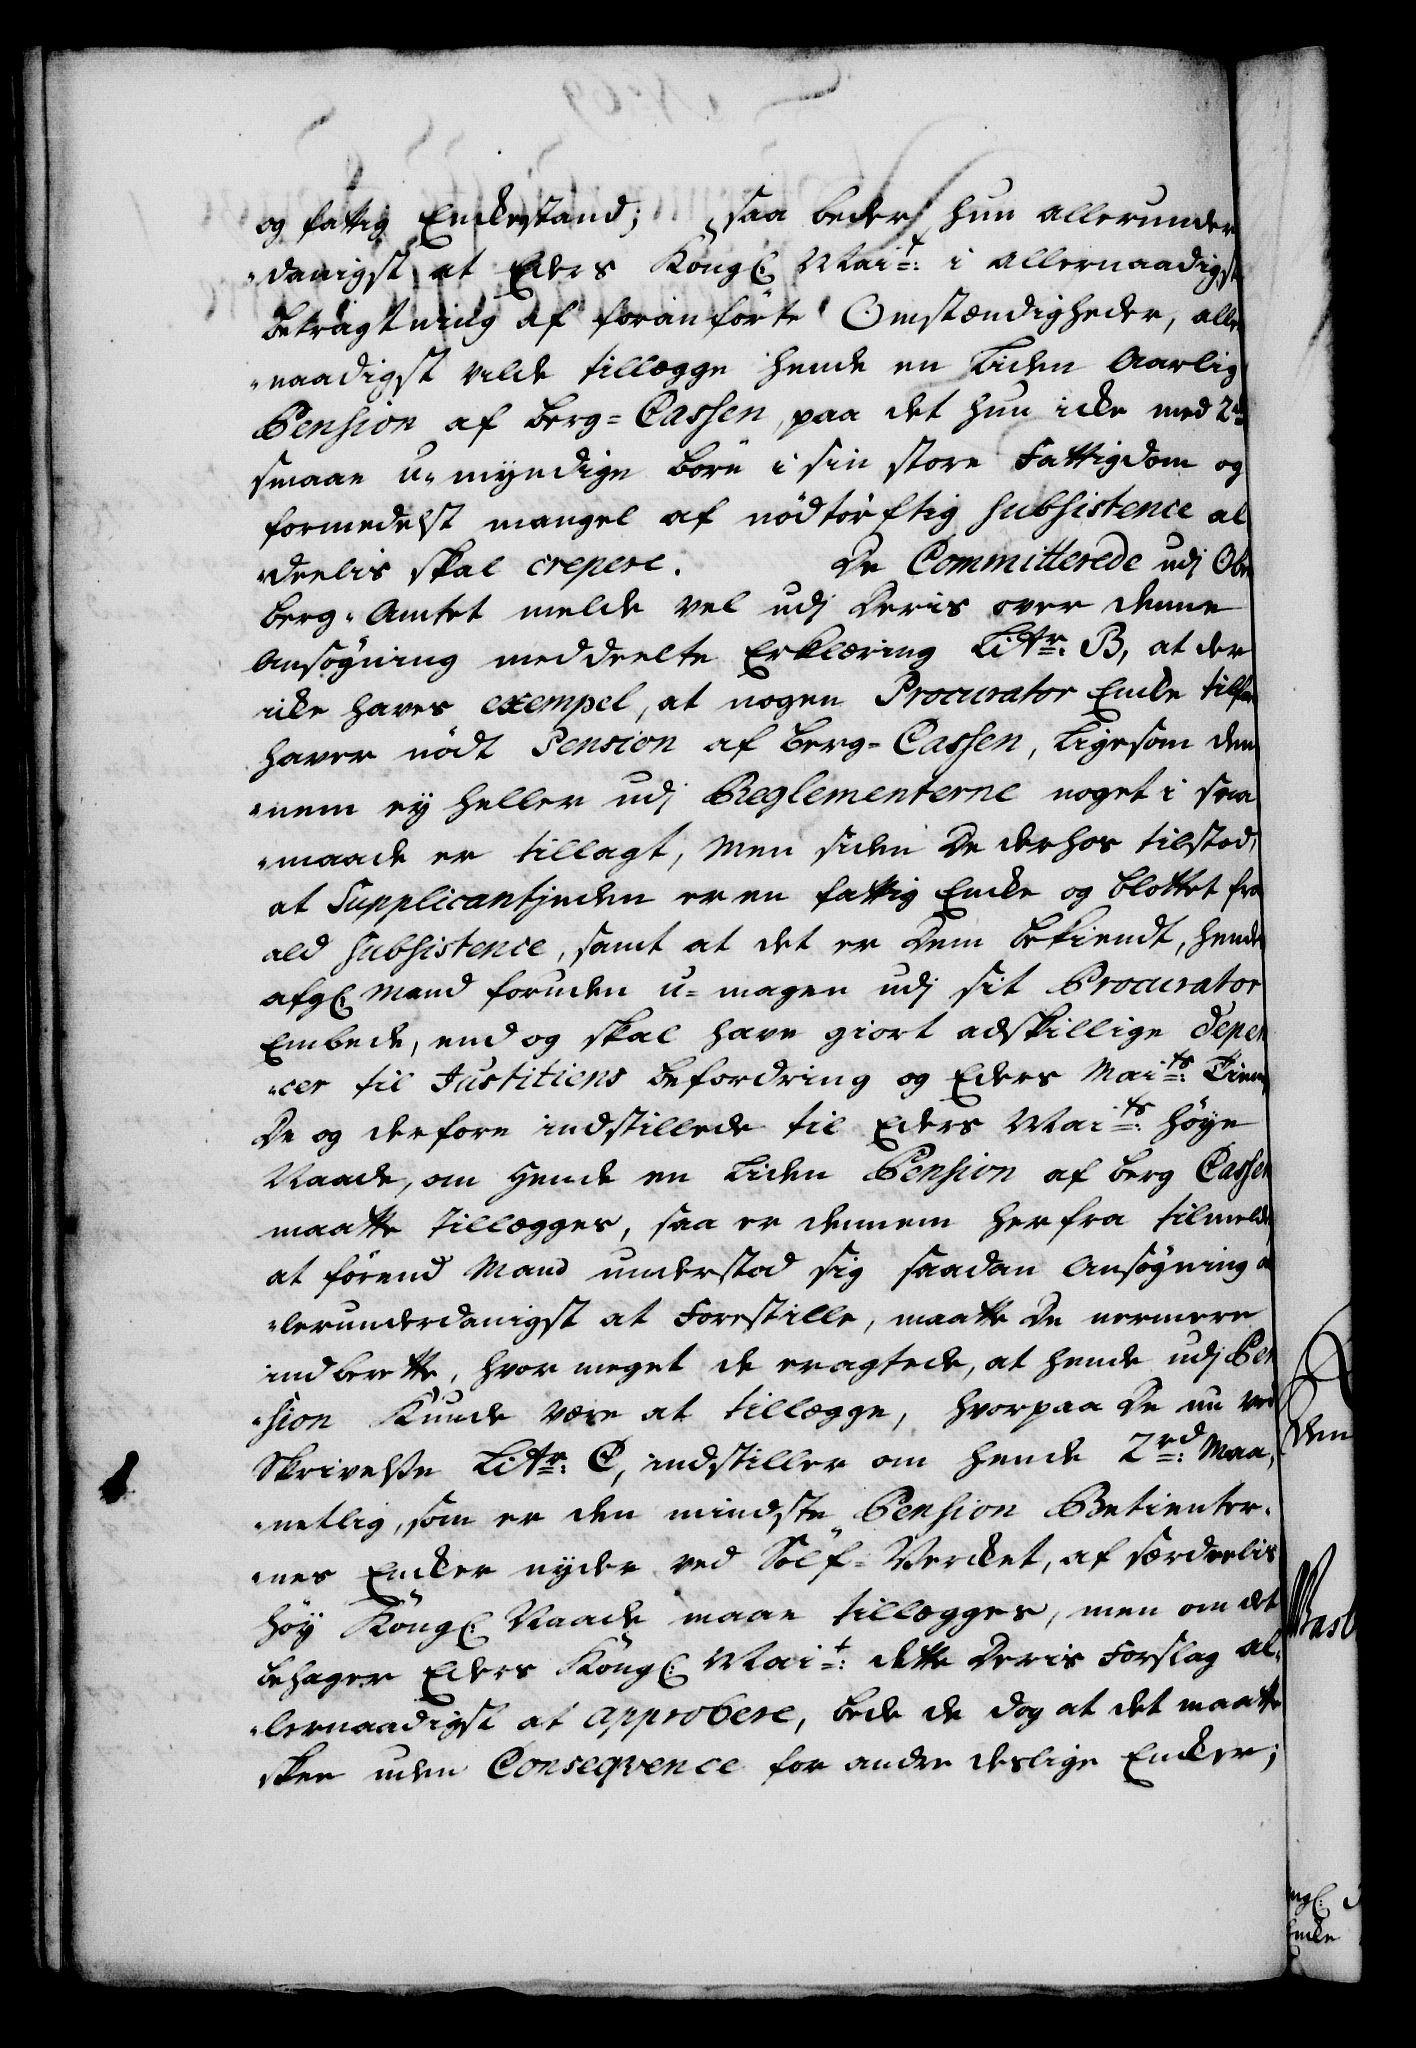 og fattig Enckestand; saa beder hun allerunder
„danigst at Eders Kongl: Mai.t: i allernaadigst
betragtning af foranförte Omstændigheder, aller
„naadigst vilde tillægge hende en liden Aarlig
Pension af Berg-Cassen, paa det hun icke med 2de
smaae u-myndige börn i sin store Fattigdom og
formedelst mangel af nödtörftig subsistence al
„deelis skal crepere. De Committerede udj Ober
berg-Amtet melde vel udj Deris over denne
Ansøgning meddeelte Erklæring Littr: B, at der
icke haves exempel, at nogen Procurator Encke tilforn
haver nödt Pension af Berg-Cassen, ligesom den
„nem ey heller udj Reglementerne noget i saa
„maade er tillagt, Men siden De derhos tilstod,
at Supplicantjnden er en fattig Encke og blottet fra
ald subsistence, samt at det er Dem bekiendt, hendes
afgl: Mand foruden u-magen udj sit Procurator
Embede, end og skal have giort adskillige depen
„cer til Justitiens befordring og Eders Mai.ts: Tieneste
De og derfore indstillede til Eders Mai.ts: höye
Naade, om hende en liden Pension af Berg Cassen
maatte tillægges, saa er dennem herfra tilmeldt,
at förend Mand understod sig saadan Ansøgning al
„lerunderdanigst at Forestille, maatte De nermere
indberette, hvor meget de eragtede, at hende udj Pen
„sion kunde være at tillægge, hvorpaa De nu ved
Skrivelse Littr: C, indstiller om hende 2 rd: Maa„
„netlig, som er den mindste Pension Betienter„
„nes Encker nyder ved Sölf-Verket, af særdeelis
höy Kongl: Naade maae tillægges, men om det
behager Eders Kongl: Mai.t: dette Deris Forslag al„
„lernaadigst at approbere, bede de dog at det maatte
skee uden Conseqvence for andre deslige Encker;